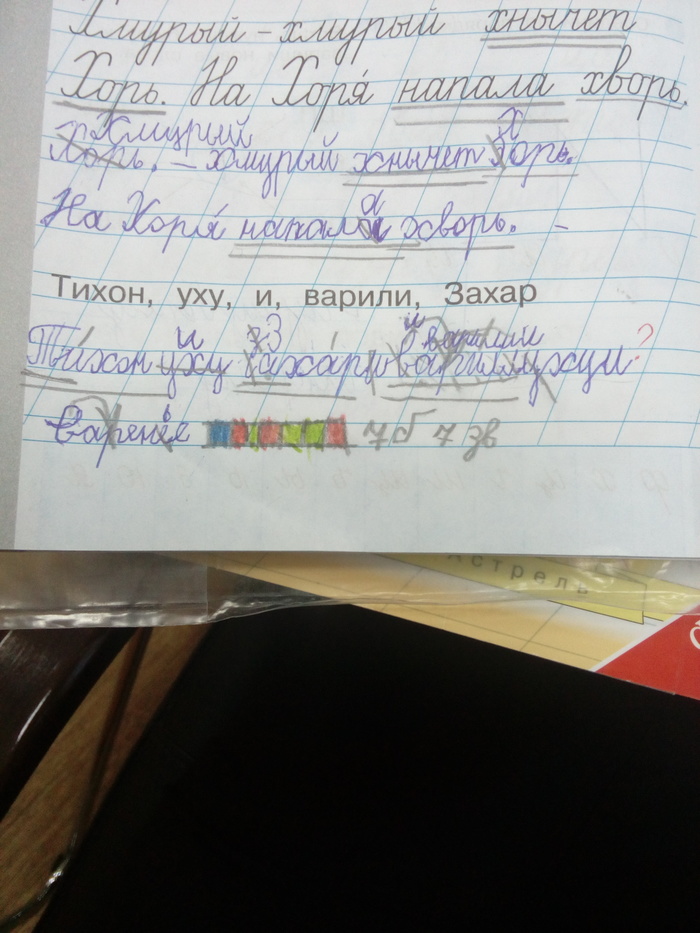 Хмурый - хмурый хнычет
Хорь. На Хоря́ напала хворь.
Хмурый х
Хорь. - хмурый хнычет хорь.
а
На Хоря́ напала хворь. -
Тихон, уху, и, варили, Захар
и З и варили
Ти́хон уху заха́р ?
Варенье 7 б 7 зв
Астрель